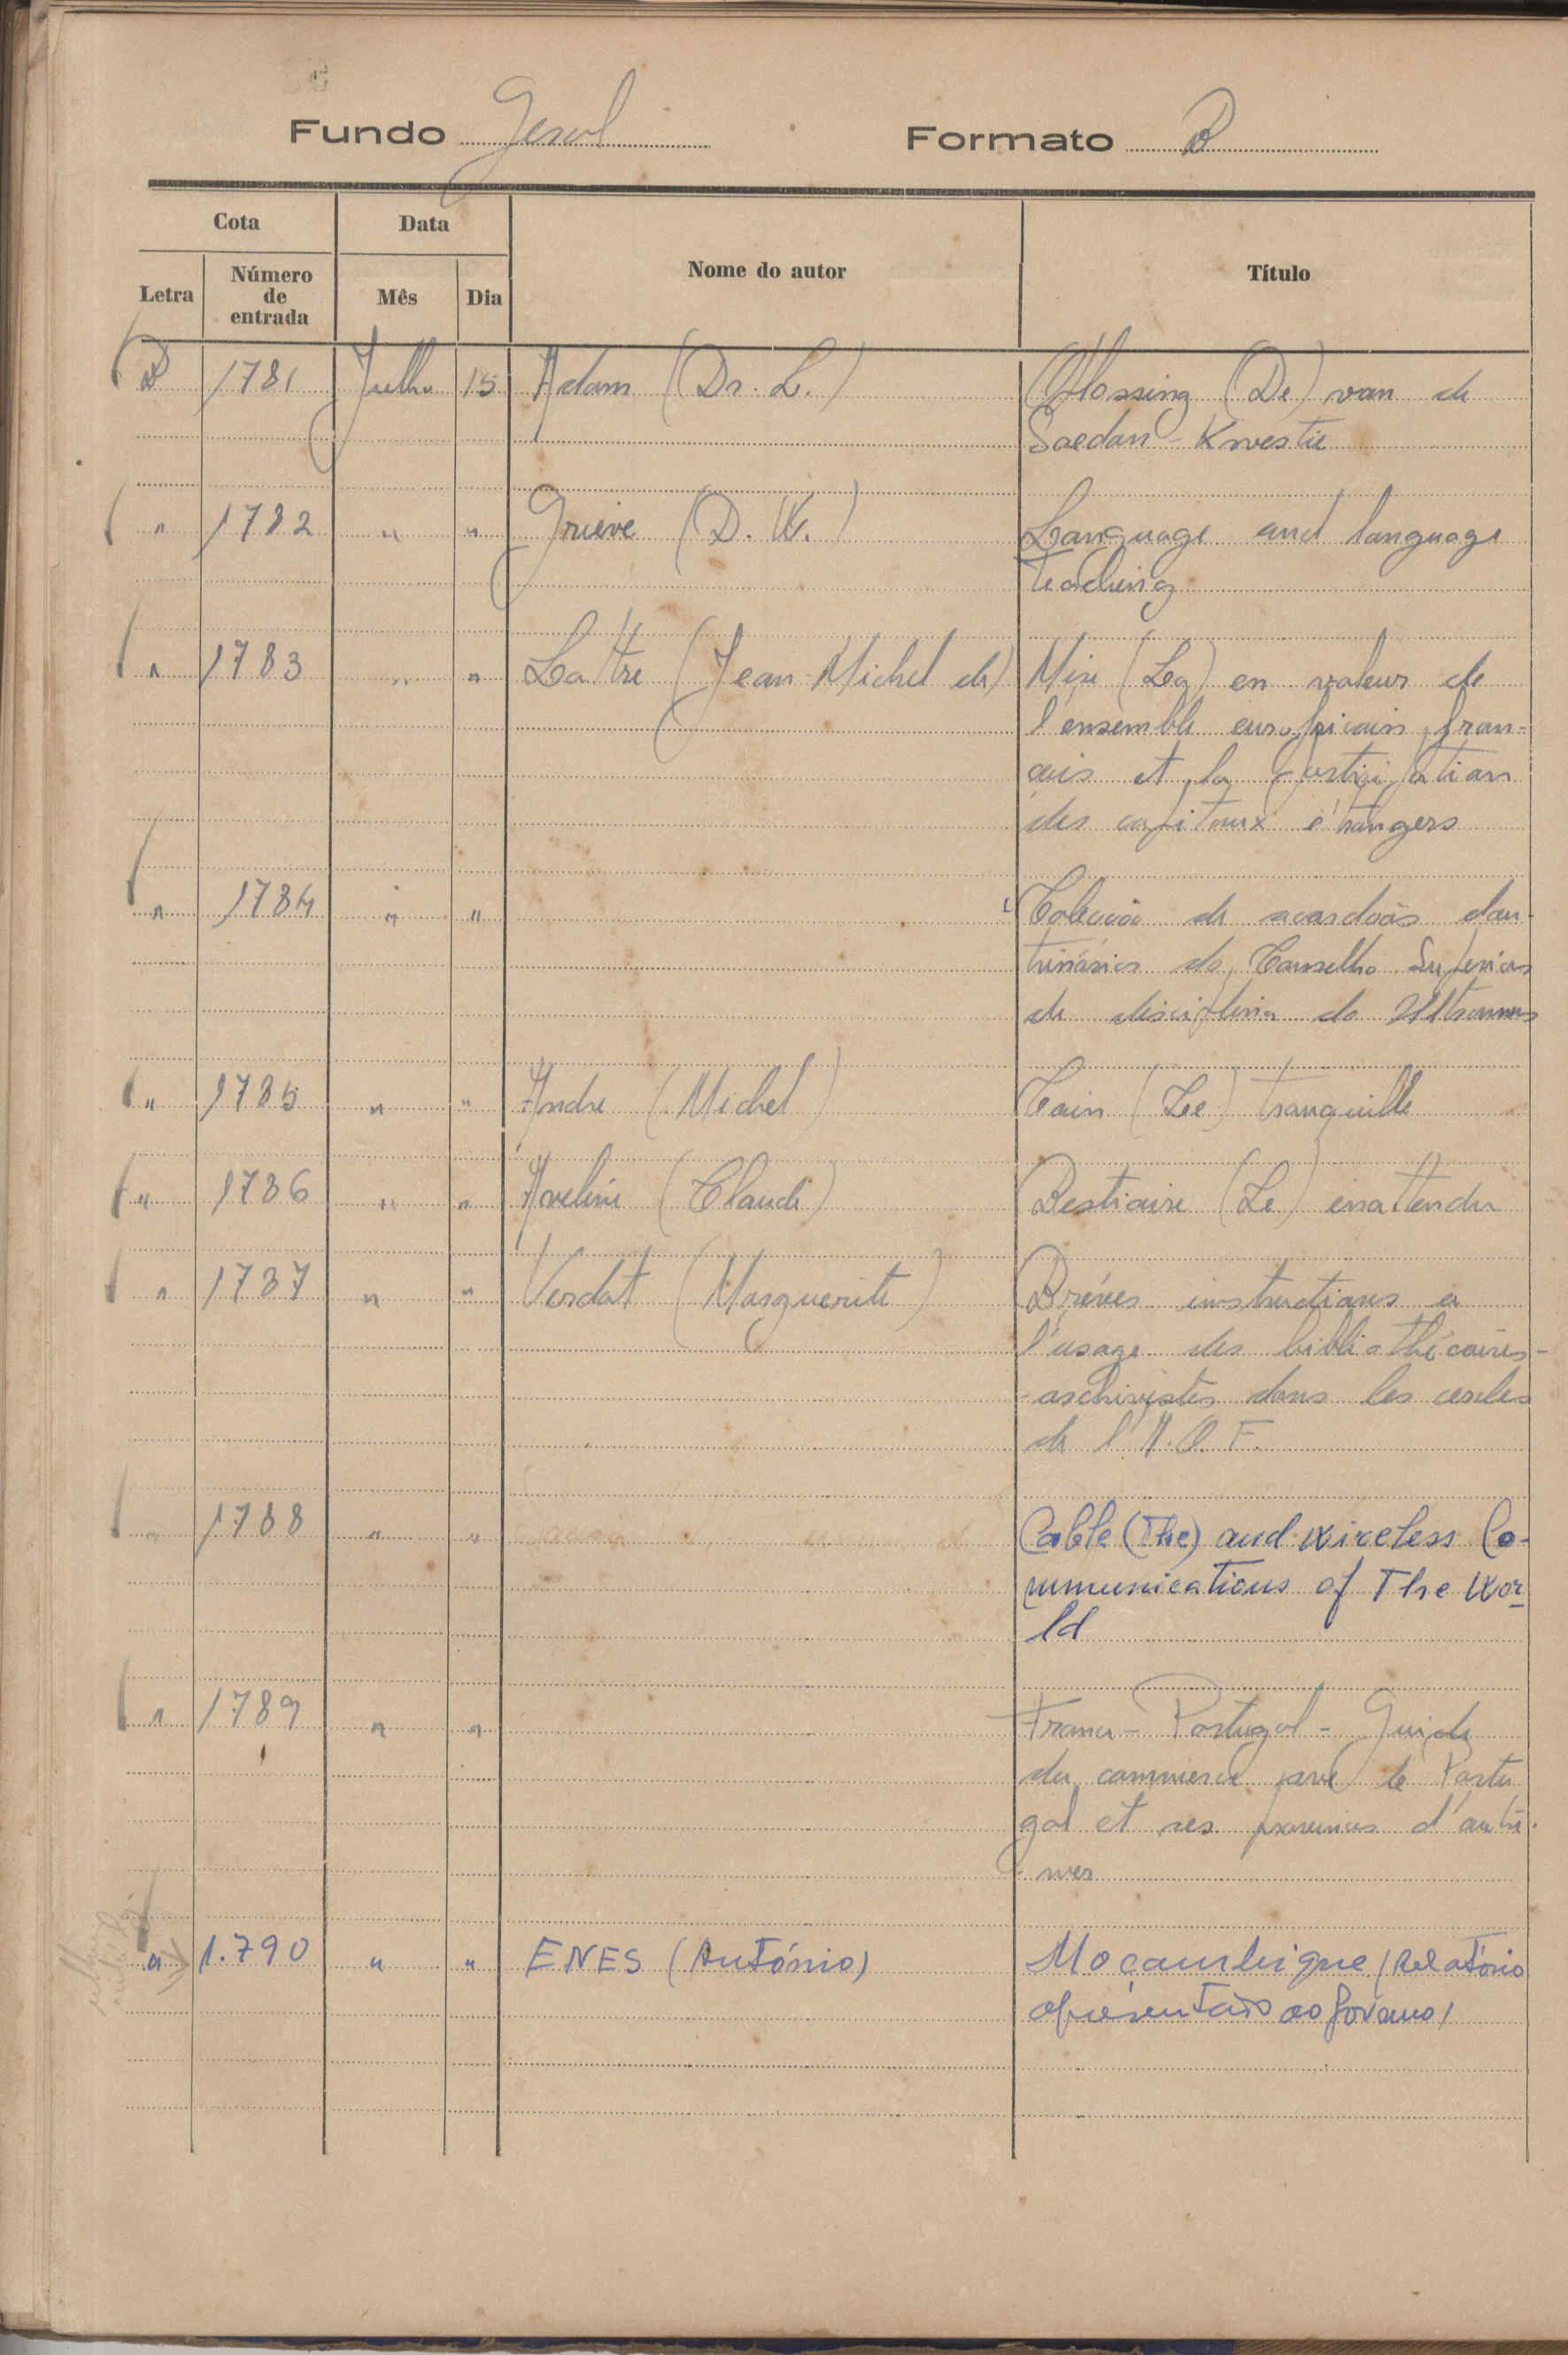 Fundo Geral Formato B
Cota Data Nome do autor Título
Letra Número de entrada Mês Dia
B 1781 Julho 15 Adam (Dr. L.) (De) van de
Soedan - Kwestie
" 1782 " " Grieve (D. W.) Language and language
teaching
" 1783 " " Lattre (Jean-Michel de) Mise (La) en valeur de
l'ensemble eurafricain fran-
çais et la participation
des capitaux étrangers
" 1784 " " Colecção de acordãos dou-
trinários do Conselho Superior
de disciplina do Ultramar
" 1785 " " Andre (Michel) Cain (Le) tranquille
" 1786 " " Aveline (Claude) Bestiaire (Le) inattendu
" 1787 " " Verdat (Marguerite) Bréves instructions a
l'usage des bibliothécaires-
-archivistes dans les cercles
de l'A.O.F.
" 1788 " " Cable (The) and Wireless Co-
mmunications of The Wor-
ld
" 1789 " " France - Portugal - Guide
du commerce avec le Portu
gal et ses provinces d'outre-
mer
" 1.790 " " ENES (António) Moçambique (Relatório
apresentado ao Governo)